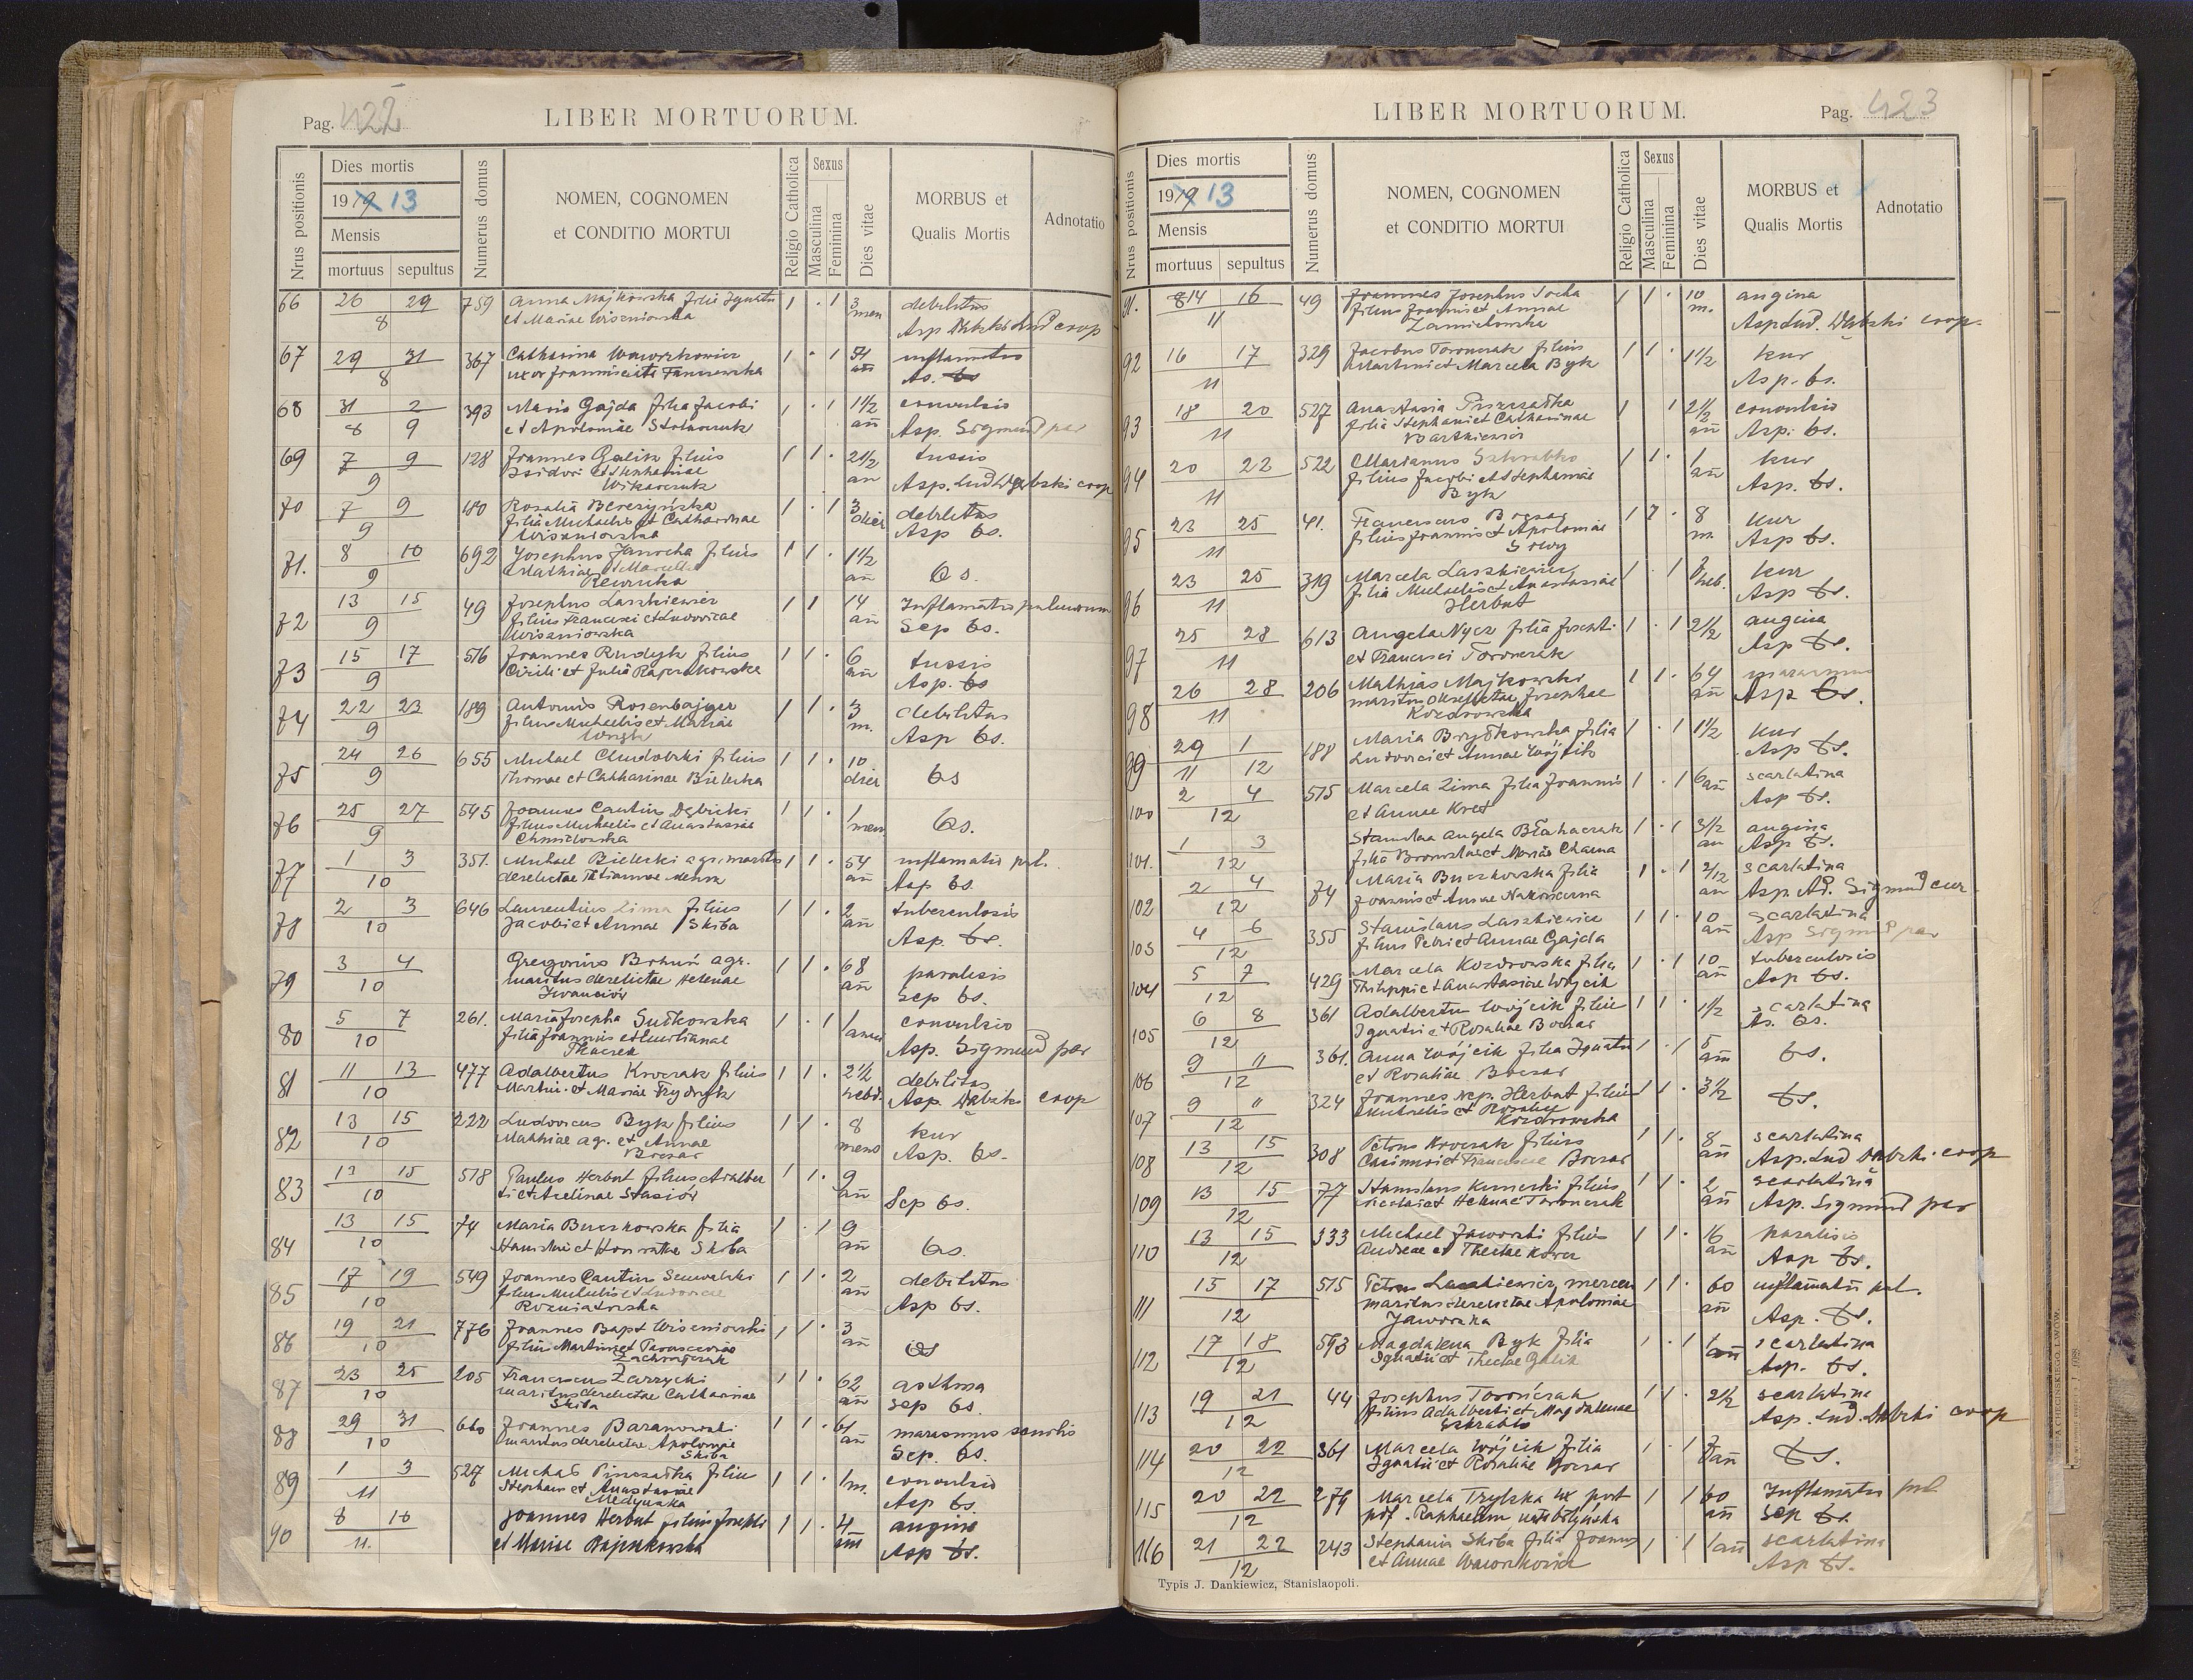 Pag. 422
LIBER MORTUORUM.
Nrus positionis
Dies mortis
1919 13
Mensis
mortuus sepultus
Numerus domus
NOMEN, COGNOMEN
et CONDITIO MORTUI
Religio Catholica
Sexus
Masculina
Feminina
Dies vitae
MORBUS et
Qualis Mortis
Adnotatio
66 26 29 759 Anna Majkowska filia Ignatii 1 . 1 3 debilitas
8 et Mariae Wiszniowska men Asp Dąbski Lud coop
67 29 31 367 Catharina Wawrzkowicz 1 . 1 54 inflamatio
8 uxor Joannis
68 31 2 393 Maria Gajda filia Jacobi 1 . 1 1½ convulsio
8 9 et Apoloniae añ Asp. Sigmund par
69 7 9 128 Joannes Galik filius 1 1 . 2½ tussis
9 Isidori et Stephaniae an Asp. Lud Dąbski coop
70 7 9 180 Rosalia Berezyńska 1 . 1 3 debilitas
9 filia Michaelis et Catharinae dier Asp bs.
Wiszniowska
71. 8 10 692 Josephus Janocha filius 1 1 . 1½
9 Mathiae et Marcella an bs.
72 13 15 49 Josephus Laszkiewicz 1 1 14 Inflamatio pulmonum
9 filius Francisci et Ludovicae an Sep bs.
Wiszniowska
73 15 17 516 Joannes Rudyk filius 1 1 . 6 tussis
9 Cirili et Julia Rajczakowska an Asp. bs
74 22 23 189 Antonius Rosenbajger 1 1 . 3 debilitas
9 filius Michaelis et Mariae m. Asp bs.
75 24 26 655 Michael Chudobski filius 1 1 . 10
9 Thomae et Catharinae Bielecka dier bs
76 25 27 545 Joannes Cantius Dębicki 1 1 . 1
9 filius Michaelis et Anastasiae men bs.
77 1 3 351. Michael Bielecki agr. maritus 1 1 . 54 inflamatio pul.
10 derelictae añ Asp bs.
78 2 3 646 Laurentius Zima filius 1 1 . 2 tuberculosis
10 Jacobi et Annae Skiba añ Asp. bs.
79 3 4 Gregorius Bohuń agr. 1 1 . 68 paralisis
10 maritus derelictae Helenae añ Sep bs.
Iwanciów
80 5 7 261. Maria Josepha Sutkowska 1 . 1 1 convulsio
10 filia Joannis et Asp. Sigmund par
81 11 13 477 Adalbertus Kroczak filius 1 1 . 2½ debilitas
10 Martini et Mariae Frydryk hebd. Asp. Dąbski coop
82 13 15 222 Ludovicus Byk filius 1 1 . 8 kur
10 Mathiae ag. et Annae mens Asp. bs.
Boczar
83 13 15 518 Paulus Herbut filius Adalber 1 1 . 9
10 ti et Avelinae Stasiów añ Sep bs.
84 13 15 74 Maria Buczkowska filia 1 . 1 9
10 Stanislai et Honorathae Skiba añ bs.
85 17 19 549 Joannes Cantius 1 1 . 2 debilitas
10 filius Michaelis et Ludovicae añ Asp bs.
Rozniatowska
86 19 21 776 Joannes Bapt Wiszniowski 1 1 . 3
10 filius Martini et an bs
87 23 25 205 Franciscus Zarzycki 1 1 . 62 asthma
10 maritus derelictae Catharinae añ Sep bs.
Skiba
88 29 31 660 Joannes Baranowski 1 1 . 61 marasmus senilis
10 maritus derelictae Apoloniae añ Sep. bs.
Skiba
89 1 3 527 Michael Pinczatka filius 1 1 . 1m. convulsio
11 Stephani et Anastasiae Asp bs.
90 8 10 Joannes Herbut filius Josephi 1 1 . 4 angina
11. et Mariae Rajczakowska añ Asp bs.
LIBER MORTUORUM.
Pag. 423
Nrus positionis
Dies mortis
1919 13
Mensis
mortuus sepultus
Numerus domus
NOMEN, COGNOMEN
et CONDITIO MORTUI
Religio Catholica
Sexus
Masculina
Feminina
Dies vitae
MORBUS et
Qualis Mortis
Adnotatio
91. 14 16 49 Joannes Josephus Socha 1 1 . 10 angina
11 filius Joannis et Annae m. Asp Lud. Dąbski coop.
92 16 17 329 Jacobus Toronczak filius 1 1 . 1½ kur
11 Martini et Marcela Byk Asp. bs.
93 18 20 527 Anastasia 1 1 2½ convulsio
11 filia Stephani et Catharinae añ Asp. bs.
94 20 22 522 Marianus Szkrabko 1 1 . 1 kur
11 filius Jacobi et Stephaniae añ Asp. bs.
Byk
95 23 25 41. Franciscus Boczar 1 1 . 8 kur
11 filius Joannis et Apoloniae m. Asp bs.
96 23 25 319 Marcela Laszkiewicz 1 . 1 kur
11 filia Michaelis et Anastasiae Asp bs.
Herbut
97 25 28 613 Angela Nycz filia Josephi 1 . 1 2½ angina
11 et Francisci Toronczak Asp bs.
98 26 28 206 Mathias Majkowski 1 1 . 64 marasmus
11 maritus derelictae Josephae añ Asp bs.
Kozdrowska
99 29 1 188 Maria Brydkowska filia 1 . 1 1½ kur
11 12 Ludovici et Annae Wójcik Asp bs.
100 2 4 515 Marcela Zima filia Joannis 1 . 1 6 añ scarlatina
12 et Annae Kret Asp bs.
101. 1 3 Stanislaa Angela Błahaczak 1 . 1 3½ angina
12 filia Bronislai et Mariae añ Asp bs.
102 2 4 74 Maria Buczkowska filia 1 . 1 2/12 scarlatina
12 Joannis et Annae Nakoneczna an Asp. Ad. Sigmund cur.
103 4 6 355 Stanislaus Laszkiewicz 1 1 . 10 scarlatina
12 filius Petri et Annae Gajda añ Asp Sigmund par
104 5 7 429 Marcela Kozdrowska filia 1 . 1 10 tuberculosis
12 Philippi et Anastasiae Wójcik añ Asp bs.
105 6 8 361 Adalbertus Wójcik filius 1 1 . 1½ scarlatina
12 Ignatii et Rosaliae Boczar As. bs.
106 9 11 361. Anna Wójcik filia Ignatii 1 . 1 5
12 et Rosaliae Boczar añ bs.
107 9 11 324 Joannes Nep. Herbut filius 1 1 . 3½ bs.
12 Michaelis et Rosaliae
Kozdrowska
108 13 15 308 Petrus Kroczak filius 1 1 . 8 scarlatina
12 Casimiri et Franciscae Boczar añ Asp. Lud Dąbski coop
109 13 15 77 Stanislaus filius 1 1 . 2 scarlatina
12 Nicolai et Helenae Toronczak añ Asp. Sigmund par
110 13 15 333 Michael Jaworski filius 1 1 . 16 paralisis
12 Andreae et Theclae añ Asp bs.
111 15 17 515 Petrus Laszkiewicz mercen 1 1 . 60 inflamatio pul.
12 maritus derelictae Apoloniae añ Asp. bs.
Jaworska
112 17 18 593 Magdalena Byk filia 1 . 1 1 scarlatina
12 Ignatii et Theclae Galik añ Asp. bs.
113 19 21 44 Josephus Torończak 1 1 . 2½ scarlatina
12 filius Adalberti et Magdalenae Asp. Lud. Dąbski coop
Szkrabko
114 20 22 361 Marcela Wójcik filia 1 . 1 añ bs.
12 Ignatii et Rosaliae Boczar
115 20 22 279 Marcela Trylska ux post 1 1 60 Inflamatio pul
12 pdf. Raphaelem añ Sep bs.
116 21 22 243 Stephania Skiba filia Joannis 1 . 1 1 añ scarlatina
12 et Annae Wawrzkowicz Asp bs.
Typis J. Dankiewicz, Stanislaopoli.